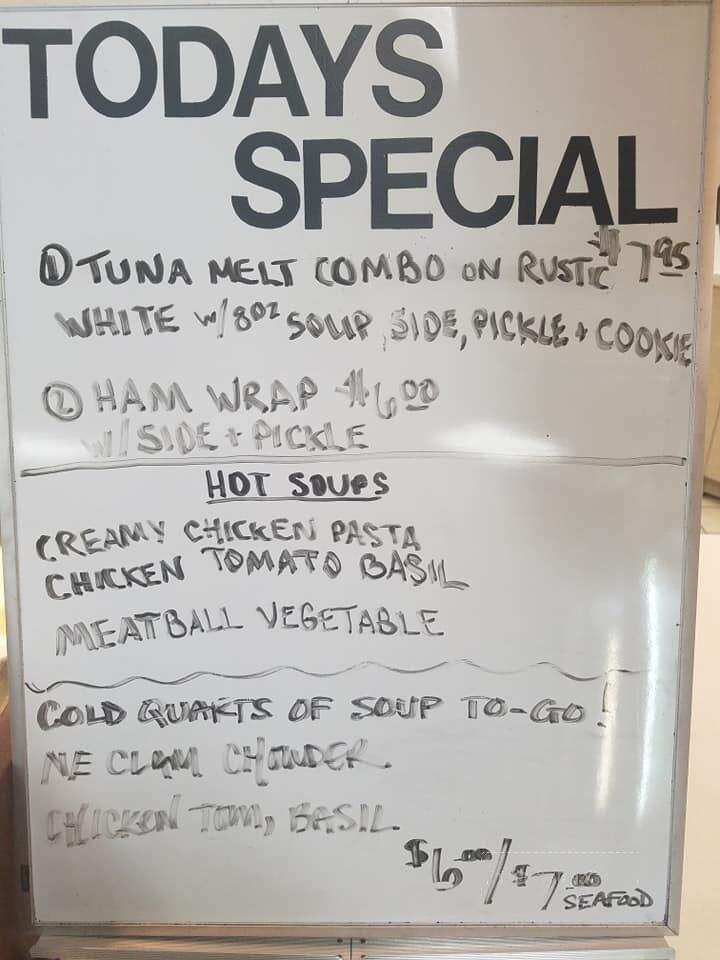 TODAYS
SPECIAL
① TUNA MELT COMBO ON RUSTIC $7.95
WHITE w/8oz SOUP, SIDE, PICKLE + COOKIE
② HAM WRAP $6.00
W/SIDE + PICKLE
HOT SOUPS
CREAMY CHICKEN PASTA
CHICKEN TOMATO BASIL
MEATBALL VEGETABLE
COLD QUARTS OF SOUP TO-GO!
NE CLAM CHOWDER
CHICKEN TOM, BASIL.
$6.00/$7.00
SEAFOOD